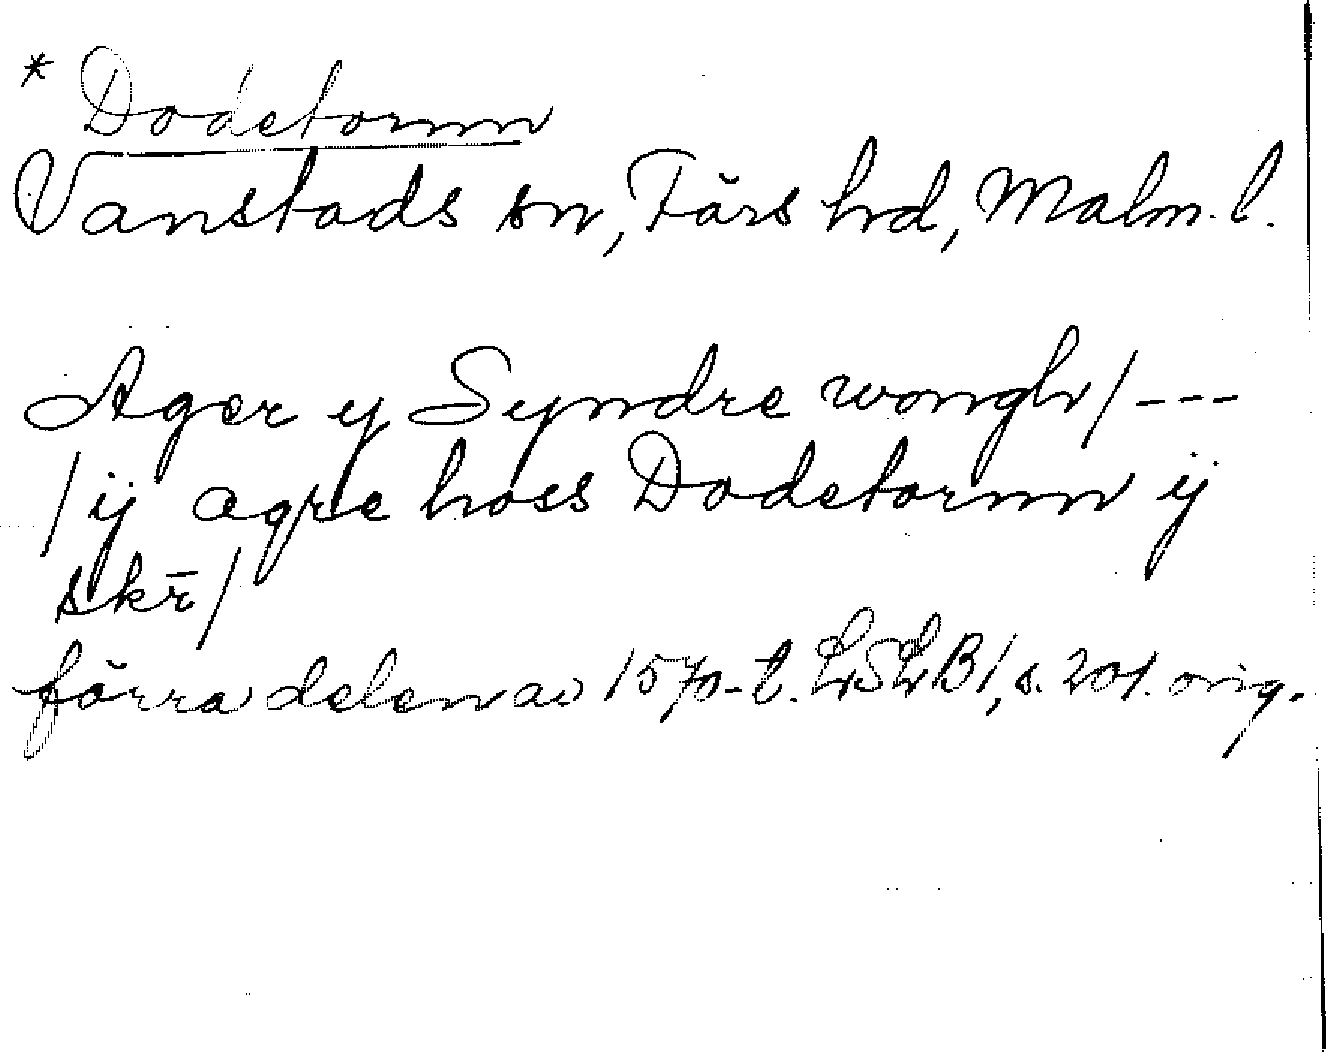 * Dodetornn
Vanstads sn, Färs hrd, Malm. l.
Ager y Syndre wongh / ---
/ ij agre hoss Dodetornn ij
skr̄ /
förra delen av 1570-t. LSLB 1, s. 201. orig.